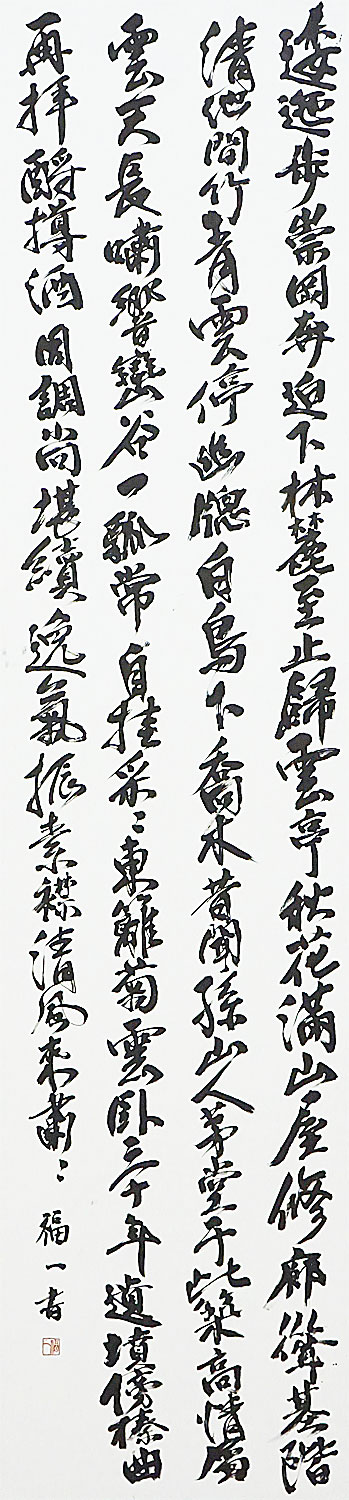 逶迤步崇岡奔迫下林麓至止歸雲亭秋花滿山屋修廊聳基階
清池間竹青雲停幽牕白鳥下喬木昔聞孫山人茅堂于此築高情屬
雲天長嘯響巒谷一瓢常自挂采〻東籬菊雲臥三十年遺墳傍榛曲
再拜酹樽酒同調尚堪續逸氣振素襟清風來肅〻
福一書